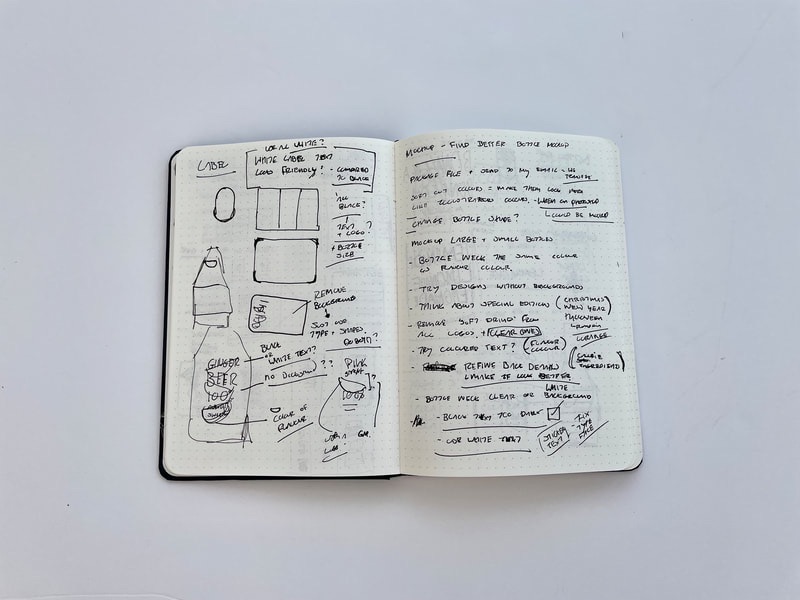 LABEL
USE ALL WHITE?
WHITE LABEL TEXT
LOOKS FRIENDLY? - COMPARED
TO BLACK
ALL
BLACK?
TEXT
+ LOGO?
+ BOTTLE
SIZE
REMOVE
BACKGROUND
JUST USE
TYPE + SHAPES.
OR BOTH?
BLACK
OR
WHITE TEXT?
NO
??
GINGER
BEER
100%
COLOUR OF
FLAVOUR
PINK
100%
MOCKUP - FIND BETTER BOTTLE MOCKUP
PACKAGE FILE + SEND TO MY EMAIL - WE
TRANSFER
SOFT OUT COLOURS = MAKE THEM LOOK MORE
LIKE ILLUSTRATED COLOURS. - WHEN ON
CHANGE BOTTLE SHAPE?
COULD BE
MOCKUP LARGE + SMALL BOTTLES
- BOTTLE NECK THE SAME COLOUR
AS FLAVOUR COLOUR.
- TRY DESIGNS WITHOUT BACKGROUNDS
- THINK ABOUT SPECIAL EDITION (CHRISTMAS
NEW YEAR
HALLOWEEN
- REMOVE SOFT DRINKS FROM
ALL LOGOS + (CLEAR ONES)
- TRY COLOURED TEXT? (FLAVOUR
COLOUR)
INGREDIENT)
- REFINE BACK DESIGN
+ MAKE IT LOOK BETTER
- BOTTLE NECK CLEAR OR WHITE
BACKGROUND
- BLACK TEXT TOO DARK
- USE WHITE TEXT
TEXT
- FIX
TYPE
FACE